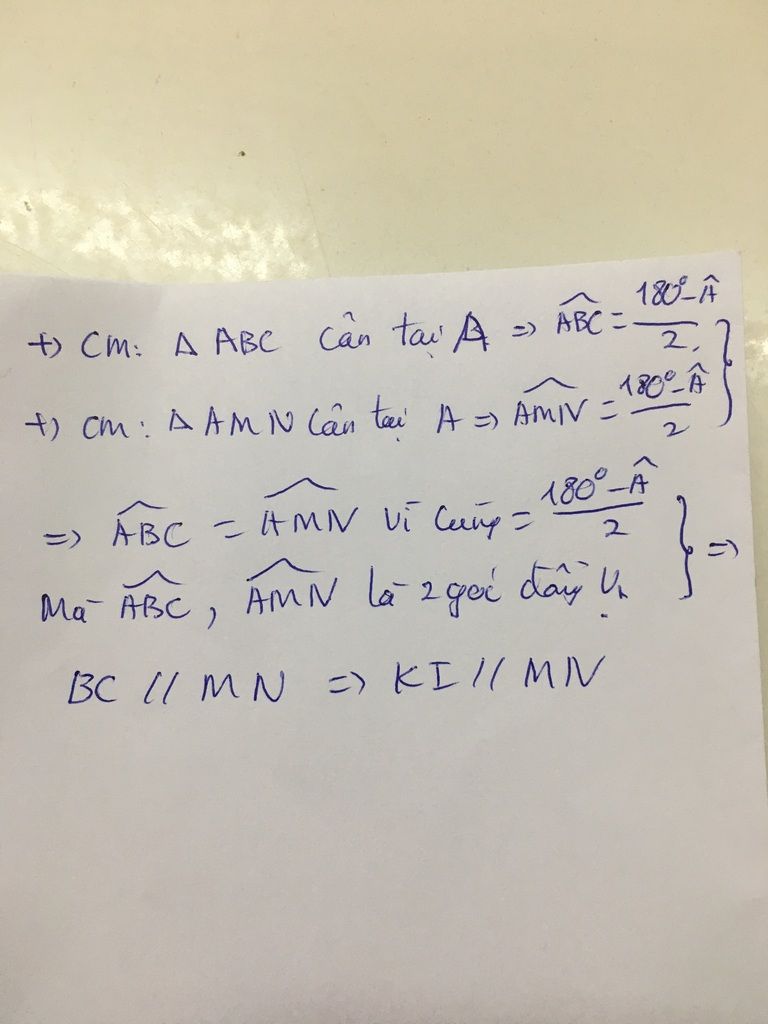 +) CM: Δ ABC cân tại A => \widehat{ABC} = \frac{180°-Â}{2}
+) CM: Δ AMN cân tại A => \widehat{AMN} = \frac{180°-Â}{2}
=> \widehat{ABC} = \widehat{AMN} vì cùng = \frac{180°-Â}{2}
Mà \widehat{ABC}, \widehat{AMN} là 2 góc đồng vị } =>
BC // MN => KI // MN